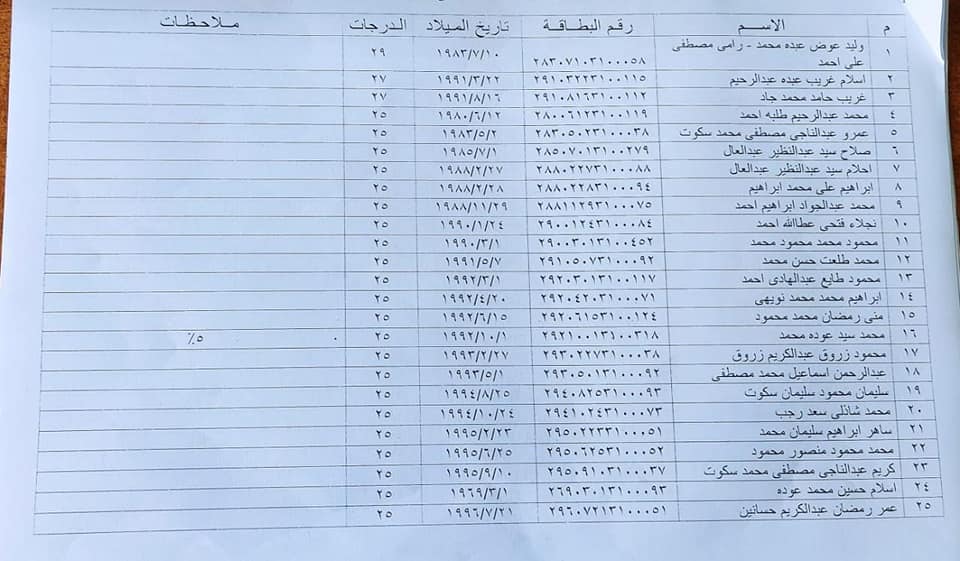 م الاسم رقم البطاقة تاريخ الميلاد الدرجات ملاحظات
١ وليد عوض عبده محمد - رامى مصطفى على احمد ٢٨٣٠٧١٠٣١٠٠٠٥٨ ١٩٨٣/٧/١٠ ٢٩
٢ اسلام غريب عبده عبدالرحيم ٢٩١٠٣٢٢٣١٠٠١١٥ ١٩٩١/٣/٢٢ ٢٧
٣ غريب حامد محمد جاد ٢٩١٠٨١٦٣١٠٠١١٢ ١٩٩١/٨/١٦ ٢٧
٤ محمد عبدالرحيم طلبه احمد ٢٨٠٠٦١٢٣١٠٠١١٩ ١٩٨٠/٦/١٢ ٢٥
٥ عمرو عبدالناجى مصطفى محمد سكوت ٢٨٣٠٥٠٢٣١٠٠٠٣٨ ١٩٨٣/٥/٢ ٢٥
٦ صلاح سيد عبدالنظير عبدالعال ٢٨٥٠٧٠١٣١٠٠٢٧٩ ١٩٨٥/٧/١ ٢٥
٧ احلام سيد عبدالنظير عبدالعال ٢٨٨٠٢٢٧٣١٠٠٠٨٨ ١٩٨٨/٢/٢٧ ٢٥
٨ ابراهيم على محمد ابراهيم ٢٨٨٠٢٢٨٣١٠٠٠٩٤ ١٩٨٨/٢/٢٨ ٢٥
٩ محمد عبدالجواد ابراهيم احمد ٢٨٨١١٢٩٣١٠٠٠٧٥ ١٩٨٨/١١/٢٩ ٢٥
١٠ نجلاء فتحى عطاالله احمد ٢٩٠٠١٢٤٣١٠٠٠٨٤ ١٩٩٠/١/٢٤ ٢٥
١١ محمود محمد محمود محمد ٢٩٠٠٣٠١٣١٠٠٤٥٢ ١٩٩٠/٣/١ ٢٥
١٢ محمد طلعت حسن محمد ٢٩١٠٥٠٧٣١٠٠٠٩٢ ١٩٩١/٥/٧ ٢٥
١٣ محمود طايع عبدالهادى احمد ٢٩٢٠٣٠١٣١٠٠١١٧ ١٩٩٢/٣/١ ٢٥
١٤ ابراهيم محمد محمد نويهى ٢٩٢٠٤٢٠٣١٠٠٠٧١ ١٩٩٢/٤/٢٠ ٢٥
١٥ منى رمضان محمد محمود ٢٩٢٠٦١٥٣١٠٠١٢٤ ١٩٩٢/٦/١٥ ٢٥
١٦ محمد سيد عوده محمد ٢٩٢١٠٠١٣١٠٠٣١٨ ١٩٩٢/١٠/١ ٢٥ ٥٪
١٧ محمود زروق عبدالكريم زروق ٢٩٣٠٢٢٧٣١٠٠٠٣٨ ١٩٩٣/٢/٢٧ ٢٥
١٨ عبدالرحمن اسماعيل محمد مصطفى ٢٩٣٠٥٠١٣١٠٠٠٩٢ ١٩٩٣/٥/١ ٢٥
١٩ سليمان محمود سليمان سكوت ٢٩٤٠٨٢٥٣١٠٠٠٩٣ ١٩٩٤/٨/٢٥ ٢٥
٢٠ محمد شاذلى سعد رجب ٢٩٤١٠٢٤٣١٠٠٠٧٣ ١٩٩٤/١٠/٢٤ ٢٥
٢١ ساهر ابراهيم سليمان محمد ٢٩٥٠٢٢٣٣١٠٠٠٥١ ١٩٩٥/٢/٢٣ ٢٥
٢٢ محمد محمود منصور محمود ٢٩٥٠٦٢٥٣١٠٠٠٥٢ ١٩٩٥/٦/٢٥ ٢٥
٢٣ كريم عبدالناجى مصطفى محمد سكوت ٢٩٥٠٩١٠٣١٠٠٠٣٧ ١٩٩٥/٩/١٠ ٢٥
٢٤ اسلام حسين محمد عوده ٢٦٩٠٣٠١٣١٠٠٠٩٣ ١٩٦٩/٣/١ ٢٥
٢٥ عمر رمضان عبدالكريم حسانين ٢٩٦٠٧٢١٣١٠٠٠٥١ ١٩٩٦/٧/٢١ ٢٥